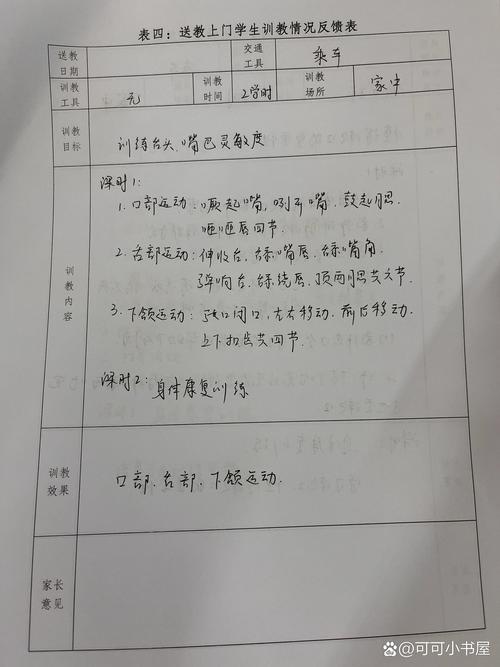 表四：送教上门学生训教情况反馈表
送教日期 交通工具 乘车
训教工具 无 训教时间 2学时 训教场所 家中
训教目标 训练舌头、嘴巴灵敏度
训教内容
课时1:
1. 口部运动：噘起嘴，咧开嘴，鼓起腮，
咂咂唇四节.
2. 舌部运动：伸收舌，舌舔嘴唇，舌舔嘴角，
弹响舌，舌舔绕唇，顶两腮共六节.
3. 下颌运动：张口闭口，左右移动.前后移动.
上下扣齿共四节.
课时2：身体康复训练
训教效果 口部.舌部.下颌运动.
家长意见
@可可小书屋